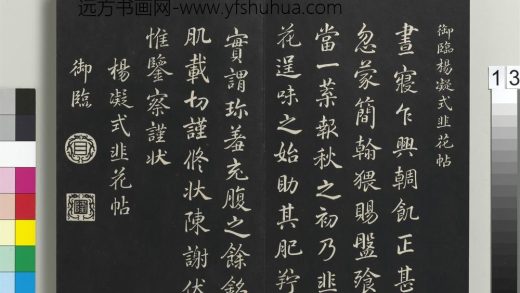 远方书画网-www.yfshuhua.com
御臨楊凝式韭花帖
晝寢乍興輖飢正甚
忽蒙簡翰猥賜盤飧
當一葉報秋之初乃韭
花逞味之始助其肥羜
實謂珍羞充腹之餘銘
肌載切謹修状陳謝伏
惟鑒察謹状
楊凝式韭花帖
御臨
13